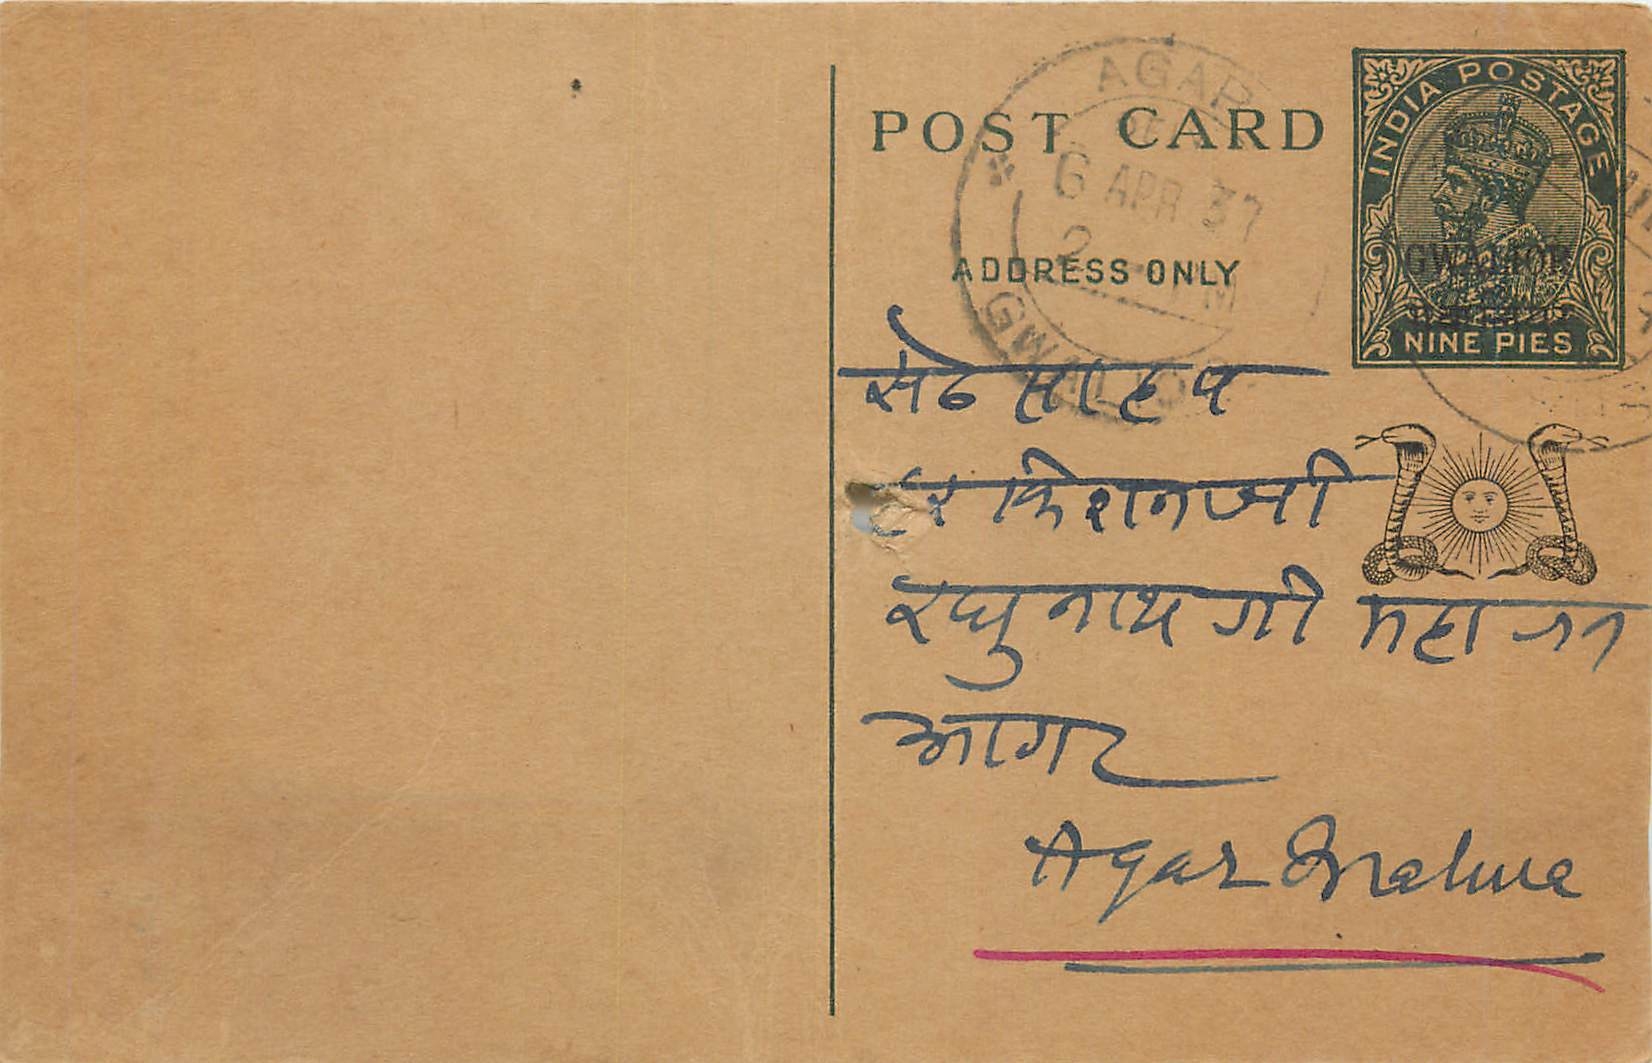 POST CARD
ADDRESS ONLY
INDIA POSTAGE
GWALIOR
NINE PIES
AGAR
6 APR 37
GWALIOR
सेठ साहब
हर किशनजी
रघुनाथजी महाराज
आगर
Agar Malwa